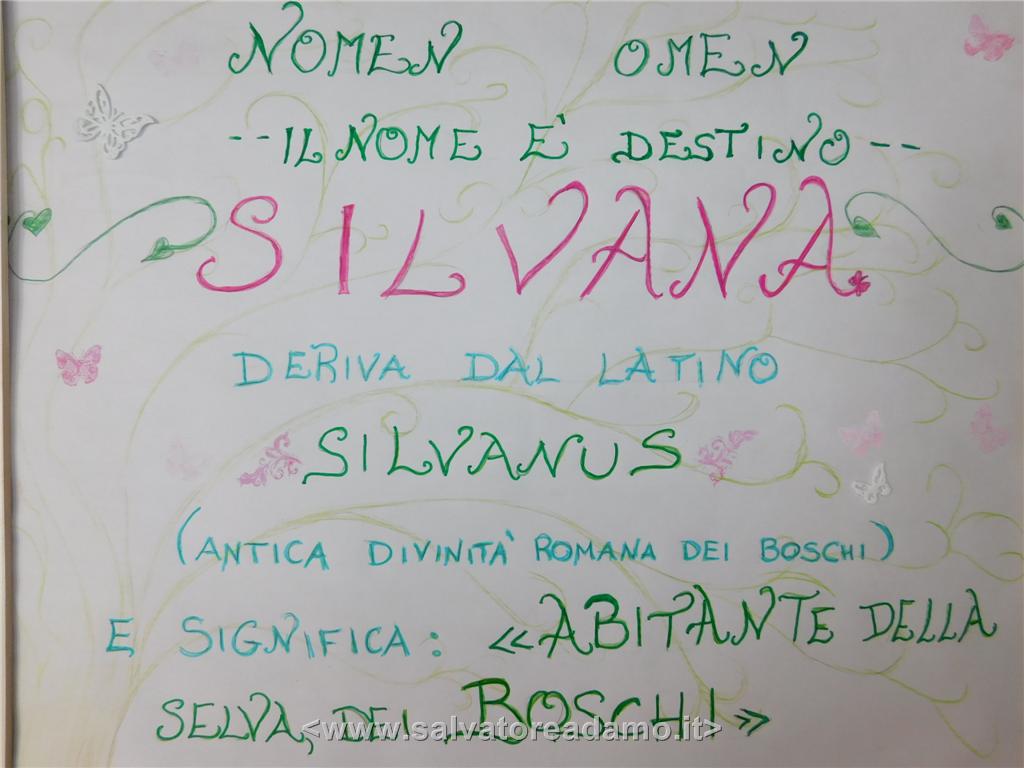 NOMEN OMEN
--IL NOME E' DESTINO--
SILVANA
DERIVA DAL LATINO
SILVANUS
(ANTICA DIVINITA' ROMANA DEI BOSCHI)
E SIGNIFICA: «ABITANTE DELLA
SELVA, DEI BOSCHI»
<www.salvatoreadamo.it>